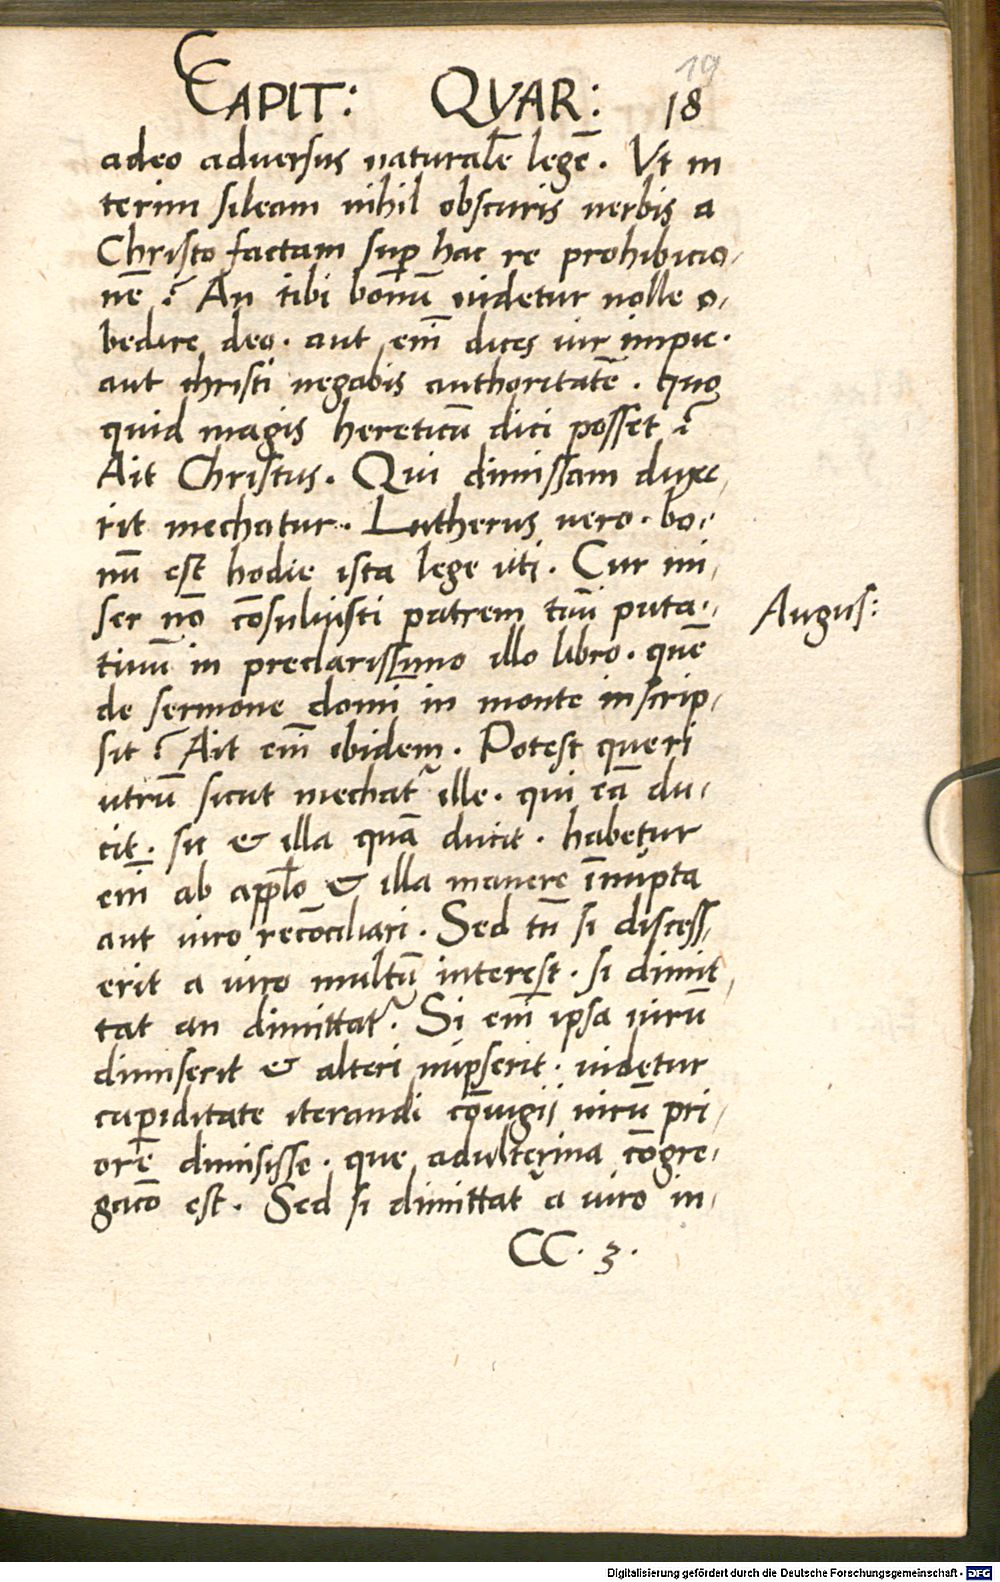 19
CAPIT: QVAR: 18
adeo adversus naturalē legē. Vt in
terim sileam nihil obscuris verbis a
Christo factam suꝑ hac re prohibicio,
nē? An tibi bonū videtur nolle o,
bedire deo. aut em̄ dices vir impie.
aut christi negabis authoritatē. quo
quid magis hereticū dici posset?
Ait Christus. Qui dimissam duxe,
rit mechatur. Lutherus vero. bo,
nū est hodie ista lege uti. Cur mi,
ser nō cōsuluisti patrem tuū puta,
Augus:
tiuū in preclarissimo illo libro. quē
de sermone domī in monte inscrip,
sit? Ait em̄ ibidem. Potest queri
utrū sicut mechat᷑ ille. qui eā du,
cit. sic & illa quā ducit. habetur
em̄ ab appl̄o & illa manere īnupta
aut viro recōciliari. Sed tn̄ si discess,
erit a viro multū interest. si dimit,
tat an dimittat᷑. Si em̄ ipsa virū
dimiserit & alteri nupserit. videtur
cupiditate iterandi cōiugii virū pri,
orē dimisisse. que adulterina cōgre,
gacō est. Sed si dimittat᷑ a viro in,
CC. 3.
Digitalisierung gefördert durch die Deutsche Forschungsgemeinschaft - DFG